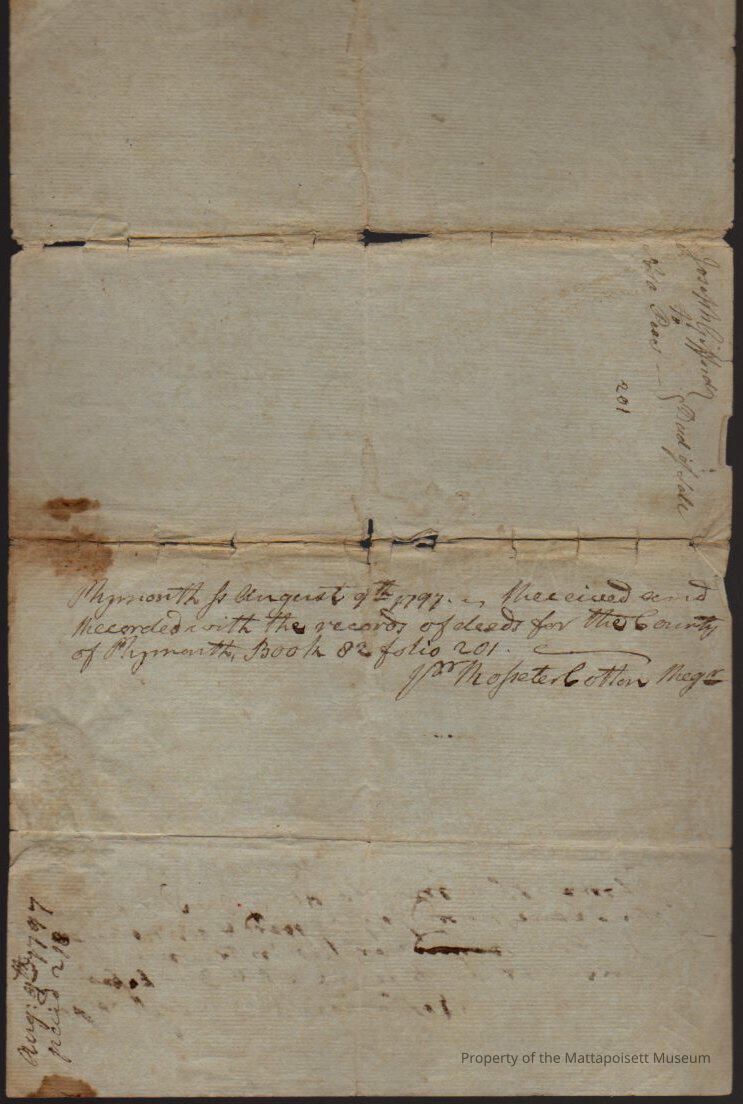 Joseph Gifford
to
Deed of Sale
201
Plymouth ss August 9th 1797. Received and
Recorded with the records of deeds for the County
of Plymouth, Book 82 folio 201.
pr Rosseter Cotton Regr
Aug: 9th 1797
paid 2/3
Property of the Mattapoisett Museum